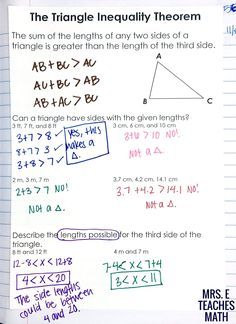 The Triangle Inequality Theorem
The sum of the lengths of any two sides of a
triangle is greater than the length of the third side.
AB + BC > AC
AC + BC > AB
AB + AC > BC
A
B
C
Can a triangle have sides with the given lengths?
3 ft, 7 ft, and 8 ft
3 cm, 6 cm, and 10 cm
3+7 > 8 ✓
8+7 > 3 ✓
3+8 > 7 ✓
yes, this
makes a
Δ.
3+6 > 10 NO!
Not a Δ.
2 m, 3 m, 7 m
3.7 cm, 4.2 cm, 14.1 cm
2+3 > 7 NO!
Not a Δ.
3.7 + 4.2 > 14.1 NO!
Not a Δ.
Describe the lengths possible for the third side of the
triangle.
8 ft and 12 ft
4 m and 7 m
12-8 < x < 12+8
4 < x < 20
The side
lengths
could be between
4 and 20.
7-4 < x < 7+4
3 < x < 11
MRS. E
TEACHES
MATH